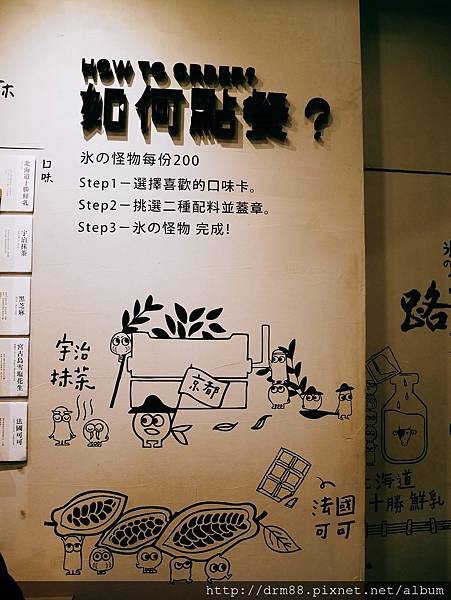 HOW TO ORDER?
如何點餐？
氷の怪物每份200
Step1－選擇喜歡的口味卡。
Step2－挑選二種配料並蓋章。
Step3－氷の怪物 完成!
口味
北海道十勝鮮乳
宇治抹茶
黑芝麻
宮古島雪鹽花生
法國可可
宇治
抹茶
京都
法國
可可
氷の
路
北海道
十勝鮮乳
http://drm88.pixnet.net/album